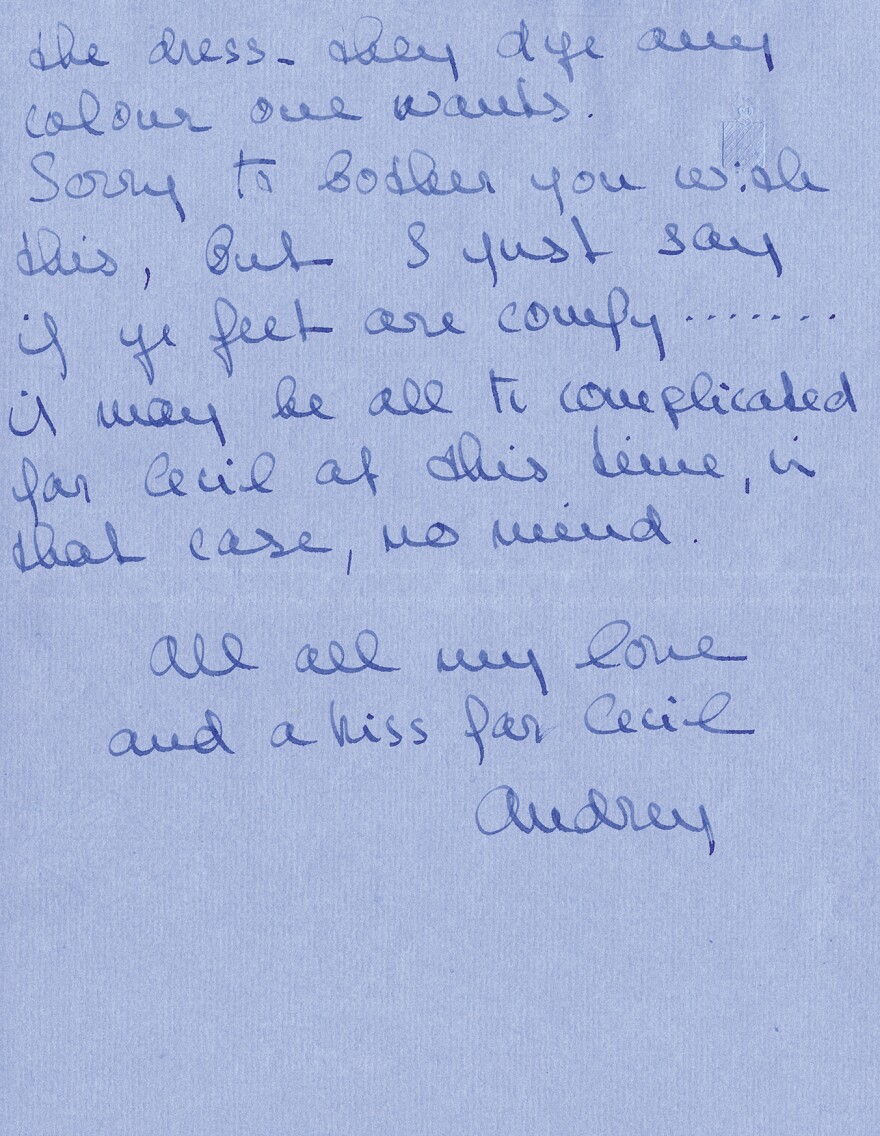 the dress - they dye any
colour one wants.
Sorry to bother you with
this, But I just say
if ye feet are comfy ........
it may be all to complicated
for Cecil at this time, in
that case, no mind.
All all my love
and a kiss for Cecil
Audrey